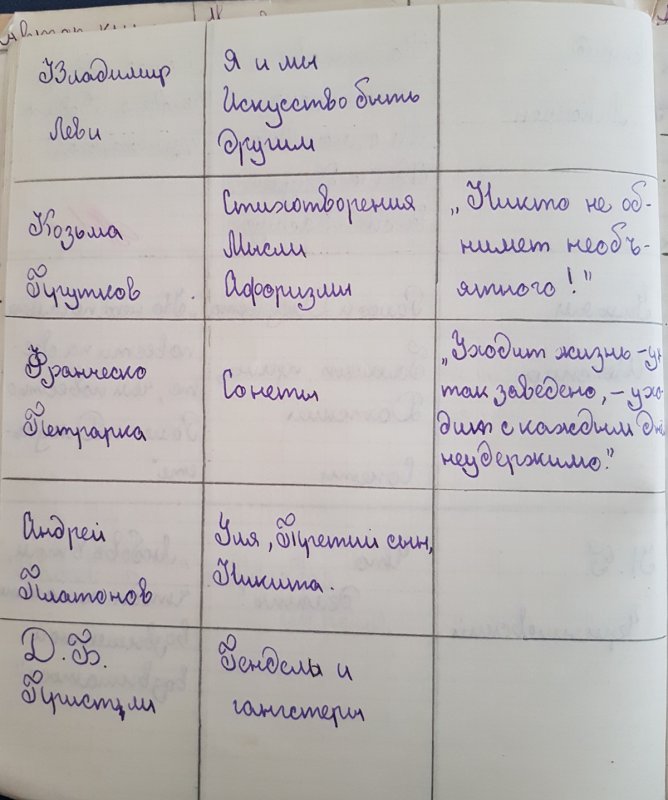 Владимир
Леви
Я и мы
Искусство быть
другим
Козьма
Прутков
Стихотворения
Мысли
Афоризмы
„Никто не об-
нимет необъ-
ятного!"
Франческо
Петрарка
Сонеты
„Уходит жизнь – уж
так заведено, – ухо-
дит с каждым днём
неудержимо."
Андрей
Платонов
Уля, Третий сын,
Никита.
Д. Б.
Пристли
Гендель и
гангстеры